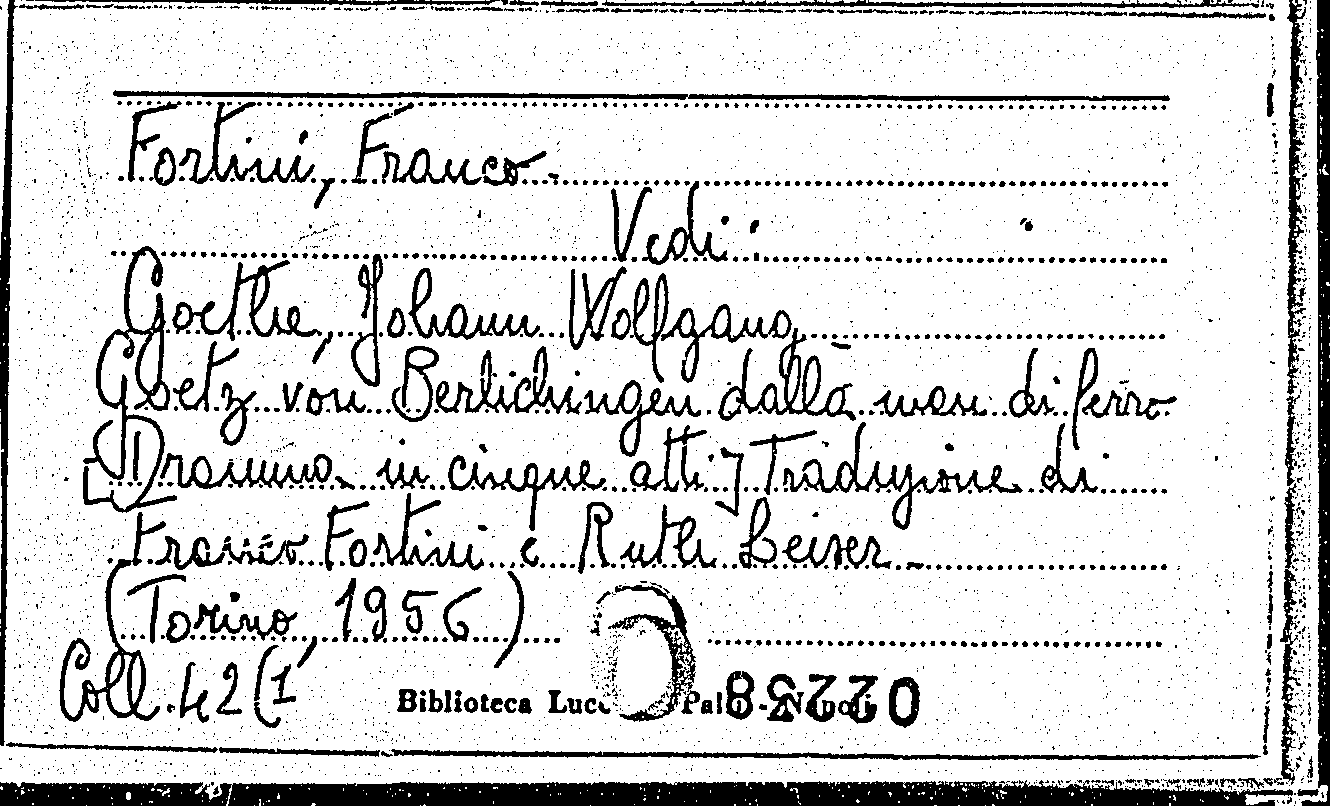 Fortini, Franco-
Vedi:
Goethe, Johann Wolfgang
Goetz von Berlichingen dalla man di ferro
[Dramma in cinque atti] Traduzione di
Franco Fortini e Ruth Leiser-
(Torino, 1956)
Coll. 42(1
Biblioteca